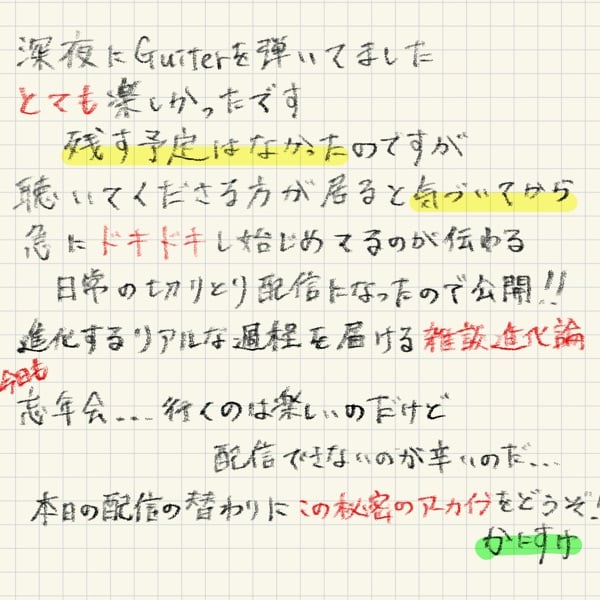 深夜にGuiterを弾いてました
とても楽しかったです
残す予定はなかったのですが
聴いてくださる方が居ると気づいてから
急にドキドキし始じめてるのが伝わる
日常の切りとり配信になったので公開!!
進化するリアルな過程を届ける雑談進化論
今日も
忘年会...行くのは楽しいのだけど
配信できないのが辛いのだ...
本日の配信の替わりにこの秘密のアーカイブをどうぞ!
かにすけ